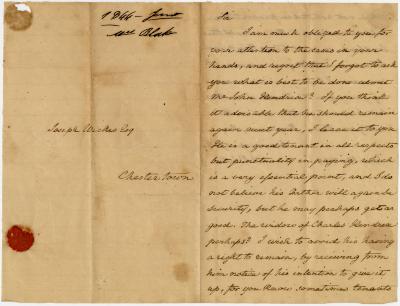 1844 - June
Mrs Blake
Joseph Wickes Esq
Chester town
Sir
I am much obliged to you for
your attention to the cases in your
hands, and regret that I forgot to ask
you what is best to be done about
Mr John Kendria? If you think
it advisable that he should remain
again next year, I leave it to you
He is a good tenant in all respects
but punctuality in paying, which
is a very essential point, and I do
not believe his Arthur will again be
security, but he may perhaps get as
good. The widow of Charles Kendria
perhaps? I wish to avoid his having
a right to remain, by receiving from
him notice of his intention to give it
up, for you know sometimes tenants